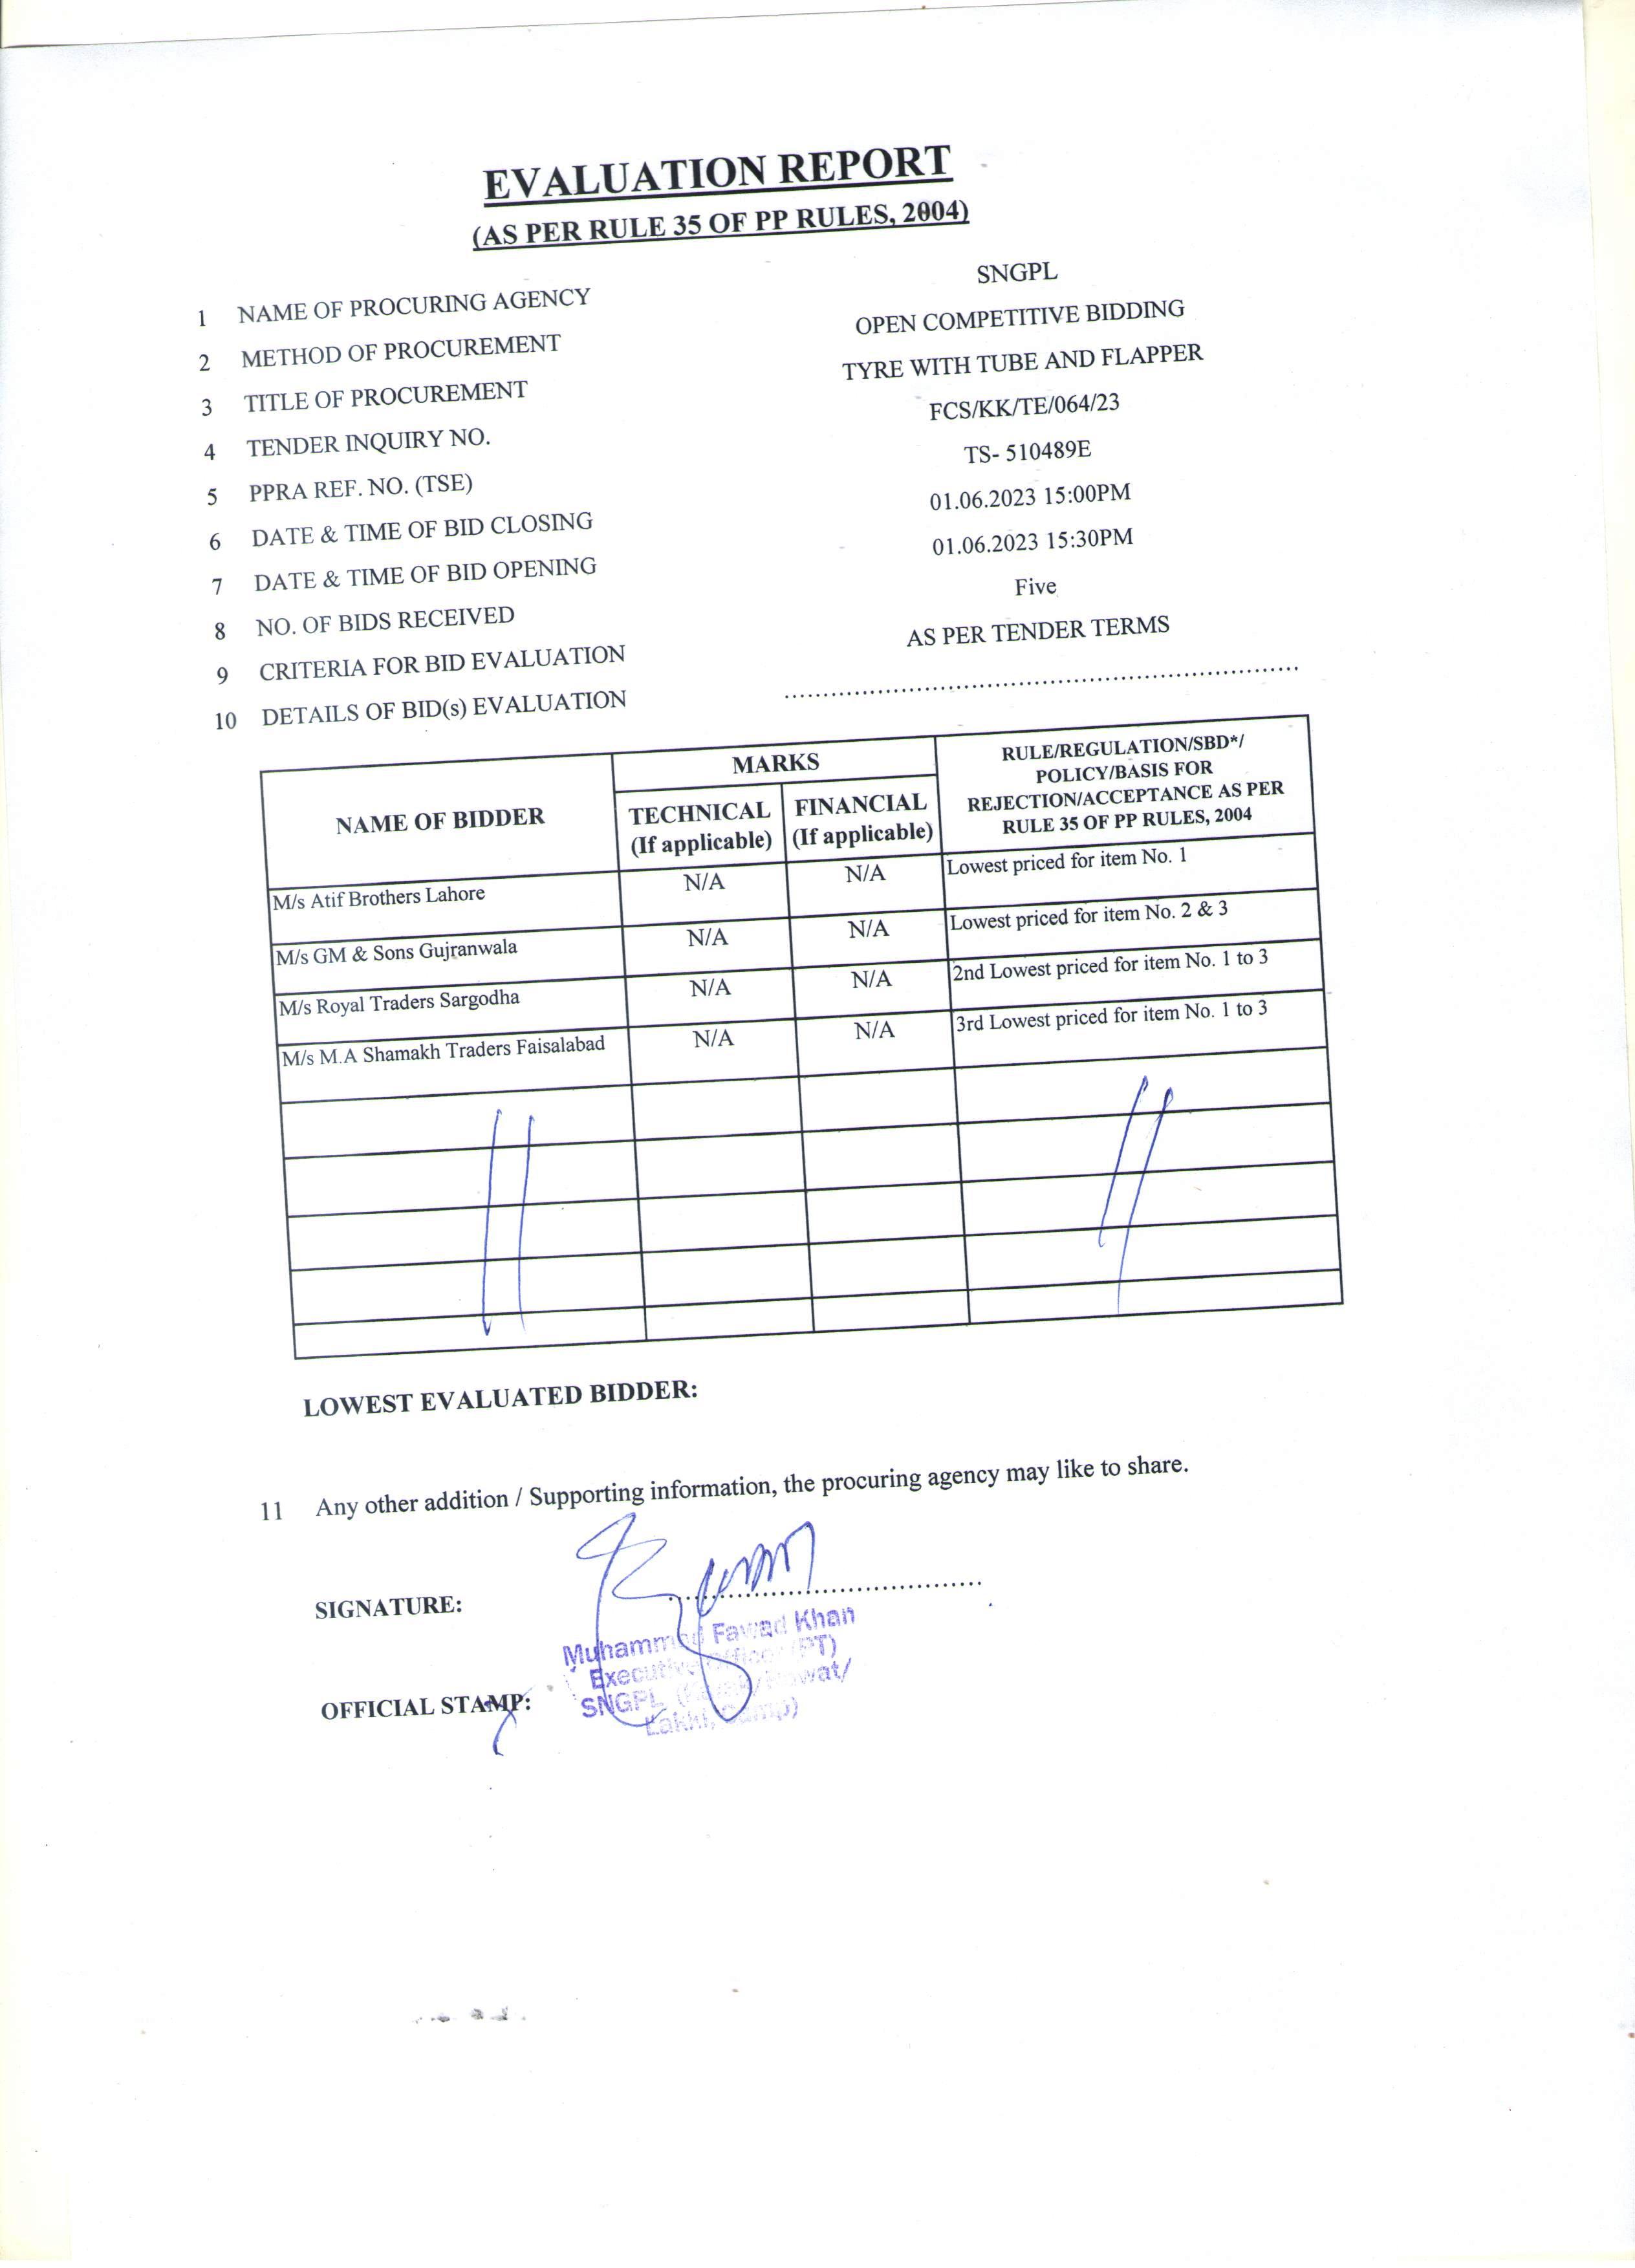 EVALUATION REPORT
(AS PER RULE 35 OF PP RULES, 2004)
1 NAME OF PROCURING AGENCY SNGPL
2 METHOD OF PROCUREMENT OPEN COMPETITIVE BIDDING
3 TITLE OF PROCUREMENT TYRE WITH TUBE AND FLAPPER
4 TENDER INQUIRY NO. FCS/KK/TE/064/23
5 PPRA REF. NO. (TSE) TS- 510489E
6 DATE & TIME OF BID CLOSING 01.06.2023 15:00PM
7 DATE & TIME OF BID OPENING 01.06.2023 15:30PM
8 NO. OF BIDS RECEIVED Five
9 CRITERIA FOR BID EVALUATION AS PER TENDER TERMS
10 DETAILS OF BID(s) EVALUATION ....................................................................
NAME OF BIDDER
MARKS
TECHNICAL
(If applicable)
FINANCIAL
(If applicable)
RULE/REGULATION/SBD*/
POLICY/BASIS FOR
REJECTION/ACCEPTANCE AS PER
RULE 35 OF PP RULES, 2004
M/s Atif Brothers Lahore N/A N/A Lowest priced for item No. 1
M/s GM & Sons Gujranwala N/A N/A Lowest priced for item No. 2 & 3
M/s Royal Traders Sargodha N/A N/A 2nd Lowest priced for item No. 1 to 3
M/s M.A Shamakh Traders Faisalabad N/A N/A 3rd Lowest priced for item No. 1 to 3
LOWEST EVALUATED BIDDER:
11 Any other addition / Supporting information, the procuring agency may like to share.
SIGNATURE: ..........................................
Muhammad Fawad Khan
Executive Officer (PT)
OFFICIAL STAMP: SNGPL
Lakki, Camp)